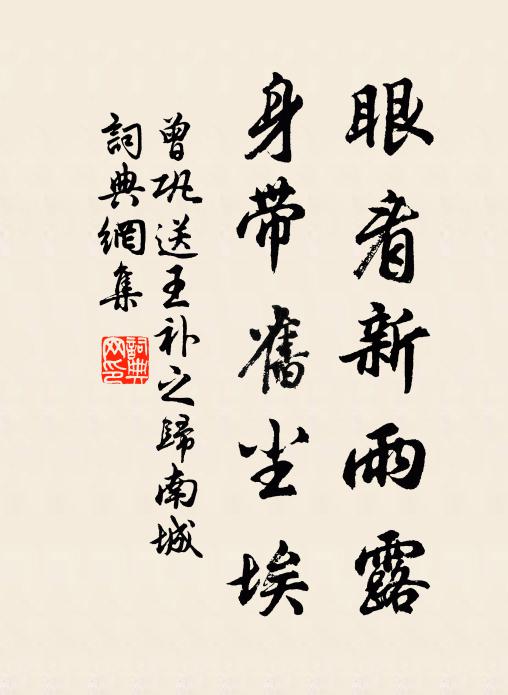 眼看新雨露
身带舊尘埃
曾巩送王补之歸南城
詞典網集
詞典网印